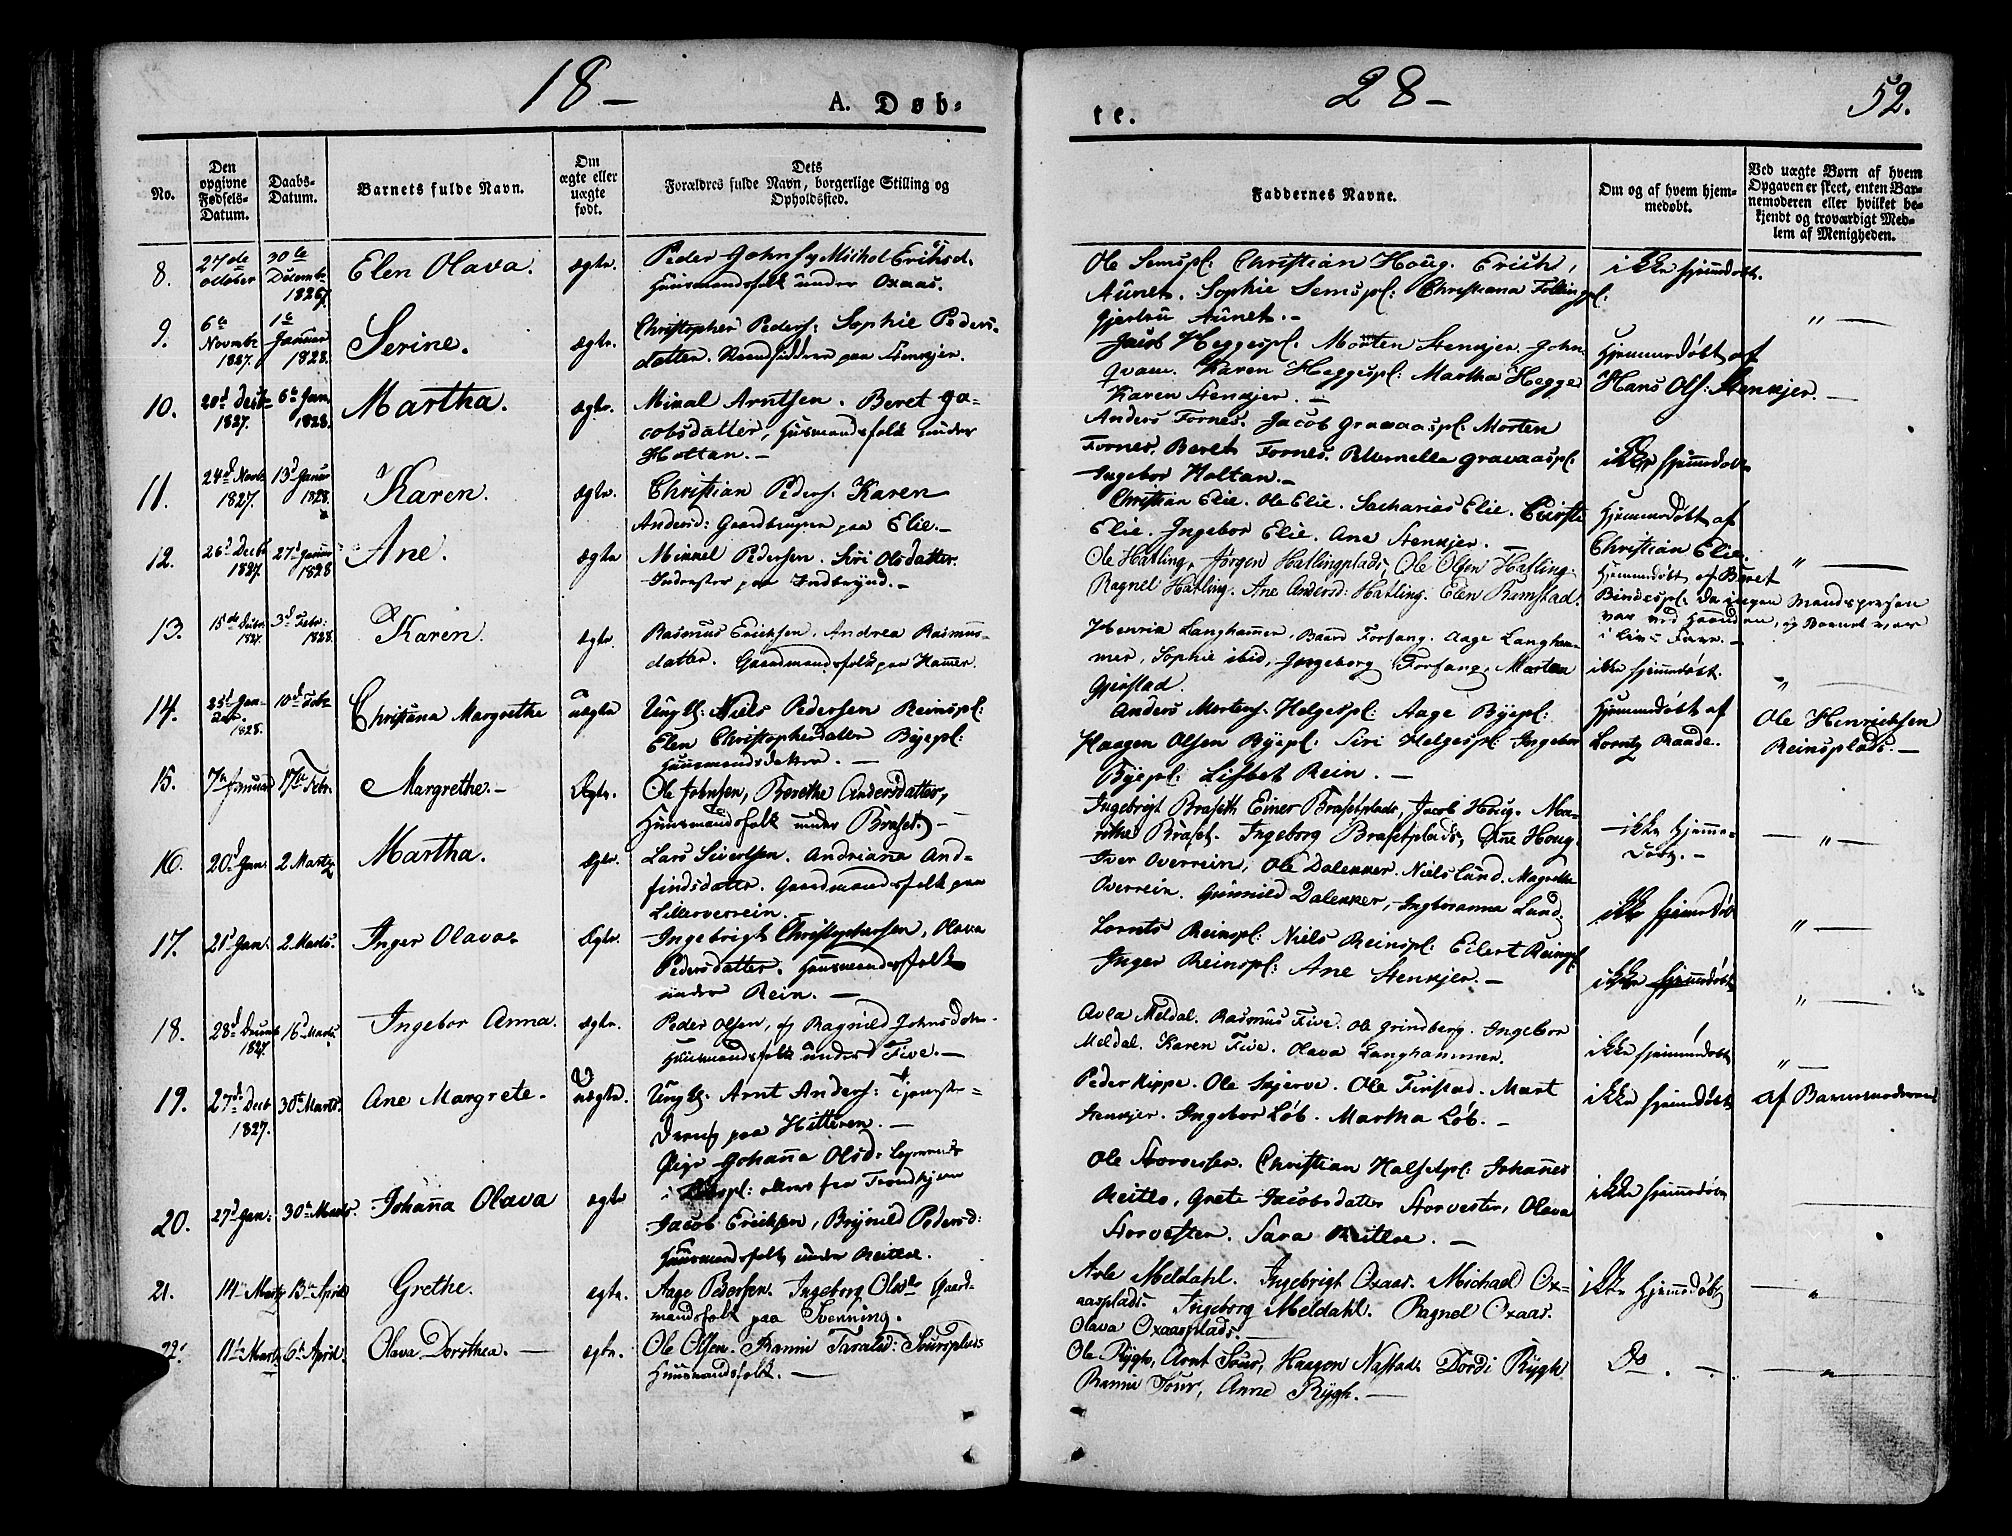 18-
A. Døb-
te.
28-
52.
No.
Den opgivne Fødsels-Datum.
Daabs-Datum.
Barnets fulde Navn.
Om ægte eller uægte født.
Dets
Forældres fulde Navn, borgerlige Stilling og
Opholdssted.
Faddernes Navne.
Om og af hvem hjem-
medøbt.
Ved uægte Børn af hvem
Opgaven er skeet, enten Bar-
nemoderen eller hvilket be-
kjendt og troværdigt Med-
lem af Menigheden.
8.
27de October
30te Decembr 1827
Elen Olava.
ægte.
Peder Johns. Michol Eriksd.
Huusmandsfolk under Oxaas.
Ole Semspl: Christian Houg. Erich
Aunet. Sophie Semspl: Christiana Følling pl:
Gjertru Aunet. -
ikke hjemdøbt.
9.
6te Novembr 1827.
1te Januar 1828.
Serine.
ægte.
Christopher Peders: Sophie Peders-
datter. Strandsiddere paa Stenkjer.
Jacob Heggespl: Morten Stenkjer. John
Qvam. Karen Heggespl: Martha Hegge
Karen Stenkjer. -
Hjemmedøbt af
Hans Ols: Stenkjer.
10.
20d Decbr 1827.
6te Jan. 1828.
Martha.
ægte.
Mikal Arntsen. Beret Ja-
cobsdatter, Husmandsfolk under
Holtan. -
Anders Fornes. Jacob Gravaaspl: Morten
Fornes. Beret Fornes. Peternella Gravaaspl:
Ingebor Holtan. -
ikke hjemdøbt
11.
24d Novbr 1827.
13d Januar 1828.
Karen.
ægte.
Christian Peders. Karen
Andersd: Gaardbruger paa Elie. -
Christian Elie. Ole Elie. Sacharias Elie. Kirsti
Elie. Ingebor Elie. Ane Stenkjer. -
Hjemmedøbt af
Christian Elie.
12.
26d Decbr 1827.
27d Januar 1828
Ane.
ægte
Mikkel Pedersen. Siri Olsdatter.
Inderster paa Indbrynd. -
Ole Hatling, Jørgen Hatlingplads, Ole Olsen Hatling.
Ragnel Hatling. Ane Andersd: Hatling. Elen Rimstad.
Hjemmedøbt af Beret
Bindespl: da ingen Mandsperson
var ved Haanden, og Barnet var
i Livs Fare. -
13.
15de Decbr. 1827.
3d Febr: 1828.
Karen.
ægte.
Rasmus Ericksen. Andrea Rasmus-
datter. Gaardmandsfolk paa Hamer.
Henria Langhammer, Baard Forfang. Aage Langham-
mer, Sophie ibid, Ingeborg Forfang, Martha
Gjerstad.
ikke hjemdøbt.
14.
25d Januar 1828.
10d Febr
Christiana Margrethe
uægte
Ungkl: Niels Pedersen Reinspl:
Elen Christophersdatter Byepl:
Huusmandsdatter. -
Anders Mortens: Helgespl: Aage Byepl:
Haagen Olsen Byepl: Siri Helgespl: Ingebor
Byepl: Lisbet Rein. -
Hjemmedøbt af
Lorntz Raade.
Ole Henrichsen
Reinsplads. -
15.
7de Januar
17de Febr.
Margrethe. -
Ægte.
Ole Johnsen, Berethe Andersdatter,
Huusmandsfolk under Braset. -
Ingebrigt Braseth Einer Brasetplads, Jacob Houg. Ma-
rithe Braset. Ingeborg Brasetplads, Ane Houg.
- ikke Hjemme-
døbt. -
16.
20d Jan.
2 Martz
Martha.
ægte.
Lars Sivertsen. Andriana And-
findsdatter. Gaardmandsfolk paa
Lilleoverrein.
Iver Overrein, Ole Dalekker. Niels Lund. Magrethe
Overrein. Gunnild Dalekker, Ingboranna Lund.
ikke hjemdøbt
17.
21d Jan.
2 Marts.
Inger Olava.
Ægte.
Ingebrigt Christophersen, Olava
Pedersdatter. Huusmandsfolk
under Rein. -
Lornts Reinspl: Niels Reinspl: Eilert Reinspl
Inger Reinspl: Ane Stenkjer. -
ikke hjemmedøbt
18.
28d Decemb 1827.
16d Marts
Ingebor Anna.
ægte.
Peder Olsen, og Ragnild Johnsdatr.
Huusmandsfolk under Five. -
Avla Meldal. Rasmus Five. Ole Grindberg. Ingebor
Meldal. Karen Five. Olava Langhammer.
ikke hjemmedøbt
19.
27de Decb 1827.
30te Marts.
Ane Margrete.
uægte.
Ungkl: Arnt Anders: Tjeneste-
dreng paa Hitteren. -
Pige Johanna Olsd: Logerende
i Løbspl: ellers fra Trondhjem
Peder Kippe. Ole Skjerve. Ole Finstad. Mart
Stenkjer. Ingebor Løb. Martha Løb. -
ikke hjemmedøbt
af Barnemoderen
20.
27d Jan:
30te Marts.
Johana Olava
ægte
Jacob Ericksen, Brynild Pedersd:
Huusmandsfolk under Reitloe.
Ole Storvester. Christian Halsetpl: Johanes
Reitlo, Grete Jacobsdatter Storvester, Olava
Storvester. Sara Reitloe. -
ikke hjemmedøbt
21.
14de Martz
13de April
Grethe.
ægte.
Aage Pedersen. Ingeborg Olsdtr Gaard-
mandsfolk paa Svenning.
Avle Meldahl. Ingebrigt Oxaas. Michael Ox-
aasplads. Ingeborg Meldahl. Ragnel Oxaas.
Olava Oxaasplads. -
ikke Hjemmedøbt
22.
11te Martz
6te April.
Olava Dorothea. -
ægte.
Ole Olsen. Ranni Taralsd: Tourplads
Huusmandsfolk. -
Ole Rygh, Arnt Tour, Haagon Nastad. Dordi Rygh
Ranni Tour, Anne Rygh. -
Do. -